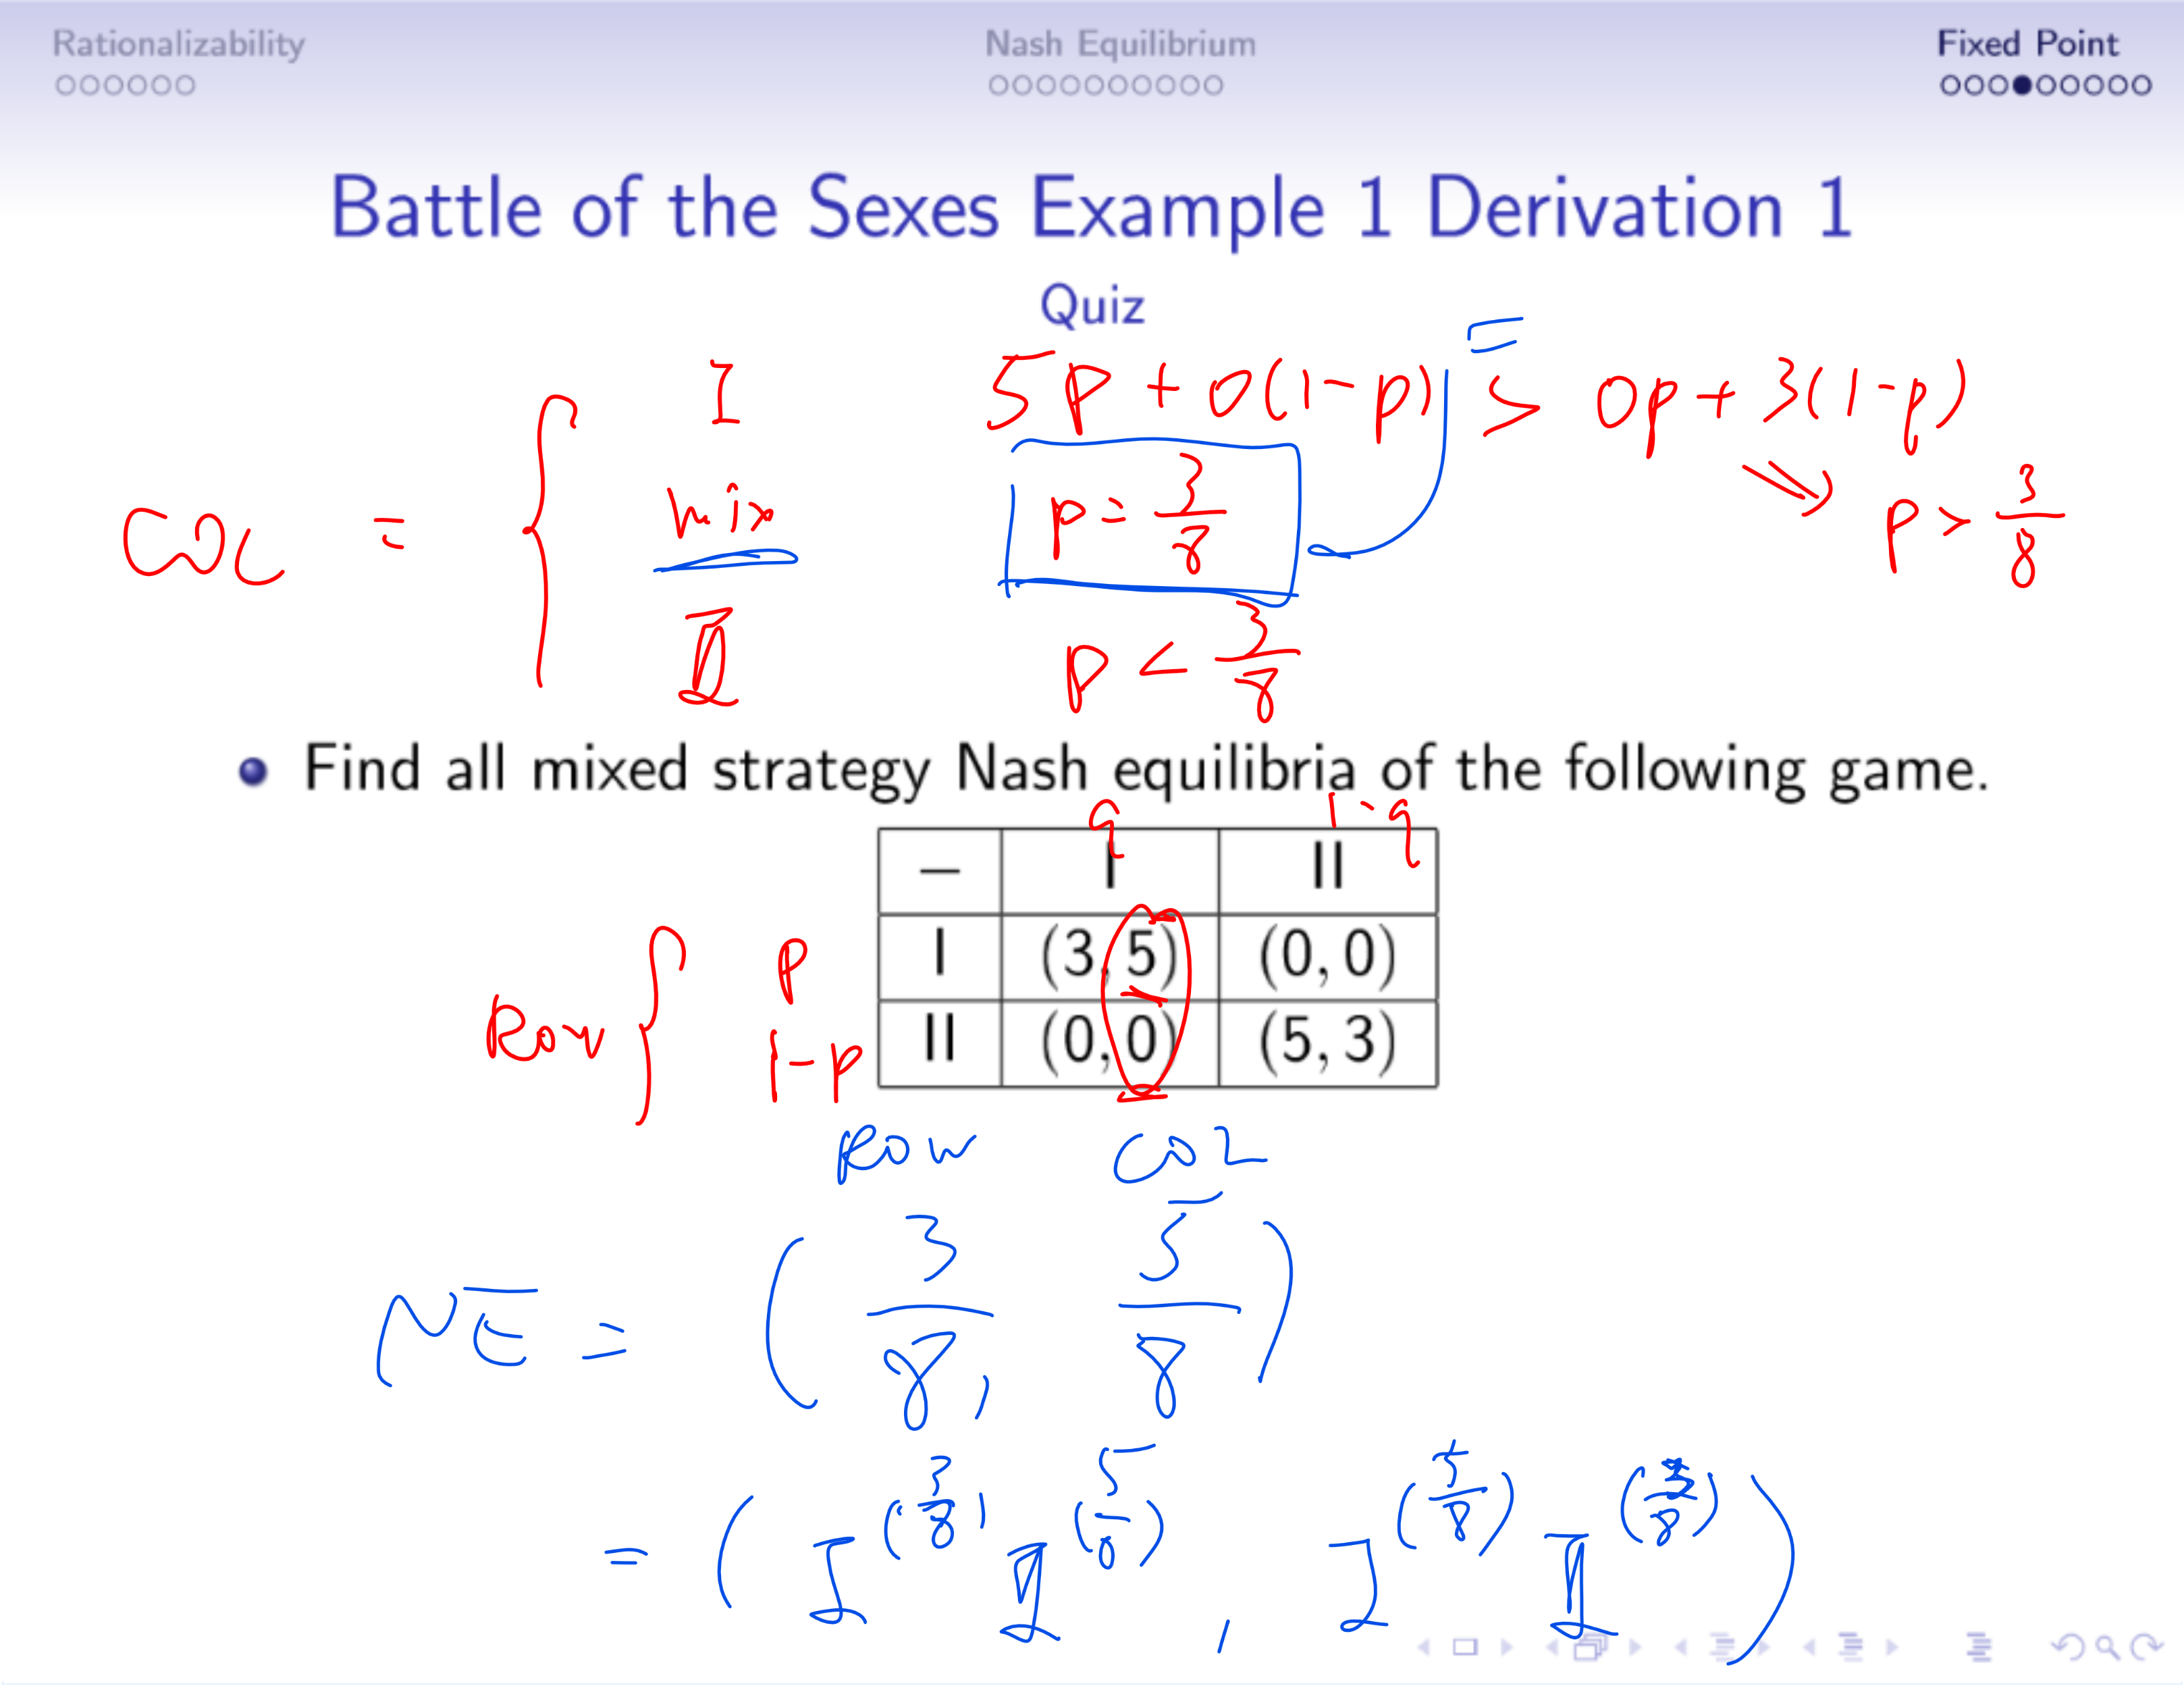 Rationalizability Nash Equilibrium Fixed Point
Battle of the Sexes Example 1 Derivation 1
Quiz
=
I 5p + 0(1-p) > 0p + 3(1-p)
col = { mix p = 3/8 ⇒ p > 3/8
II p < 3/8
Find all mixed strategy Nash equilibria of the following game.
q 1-q
– I II
Row { p I (3, 5) (0, 0)
1-p II (0, 0) (5, 3)
Row Col
NE = ( 3/8, 5/8 )
= ( I^(3/8) II^(5/8), I^(5/8) II^(3/8) )